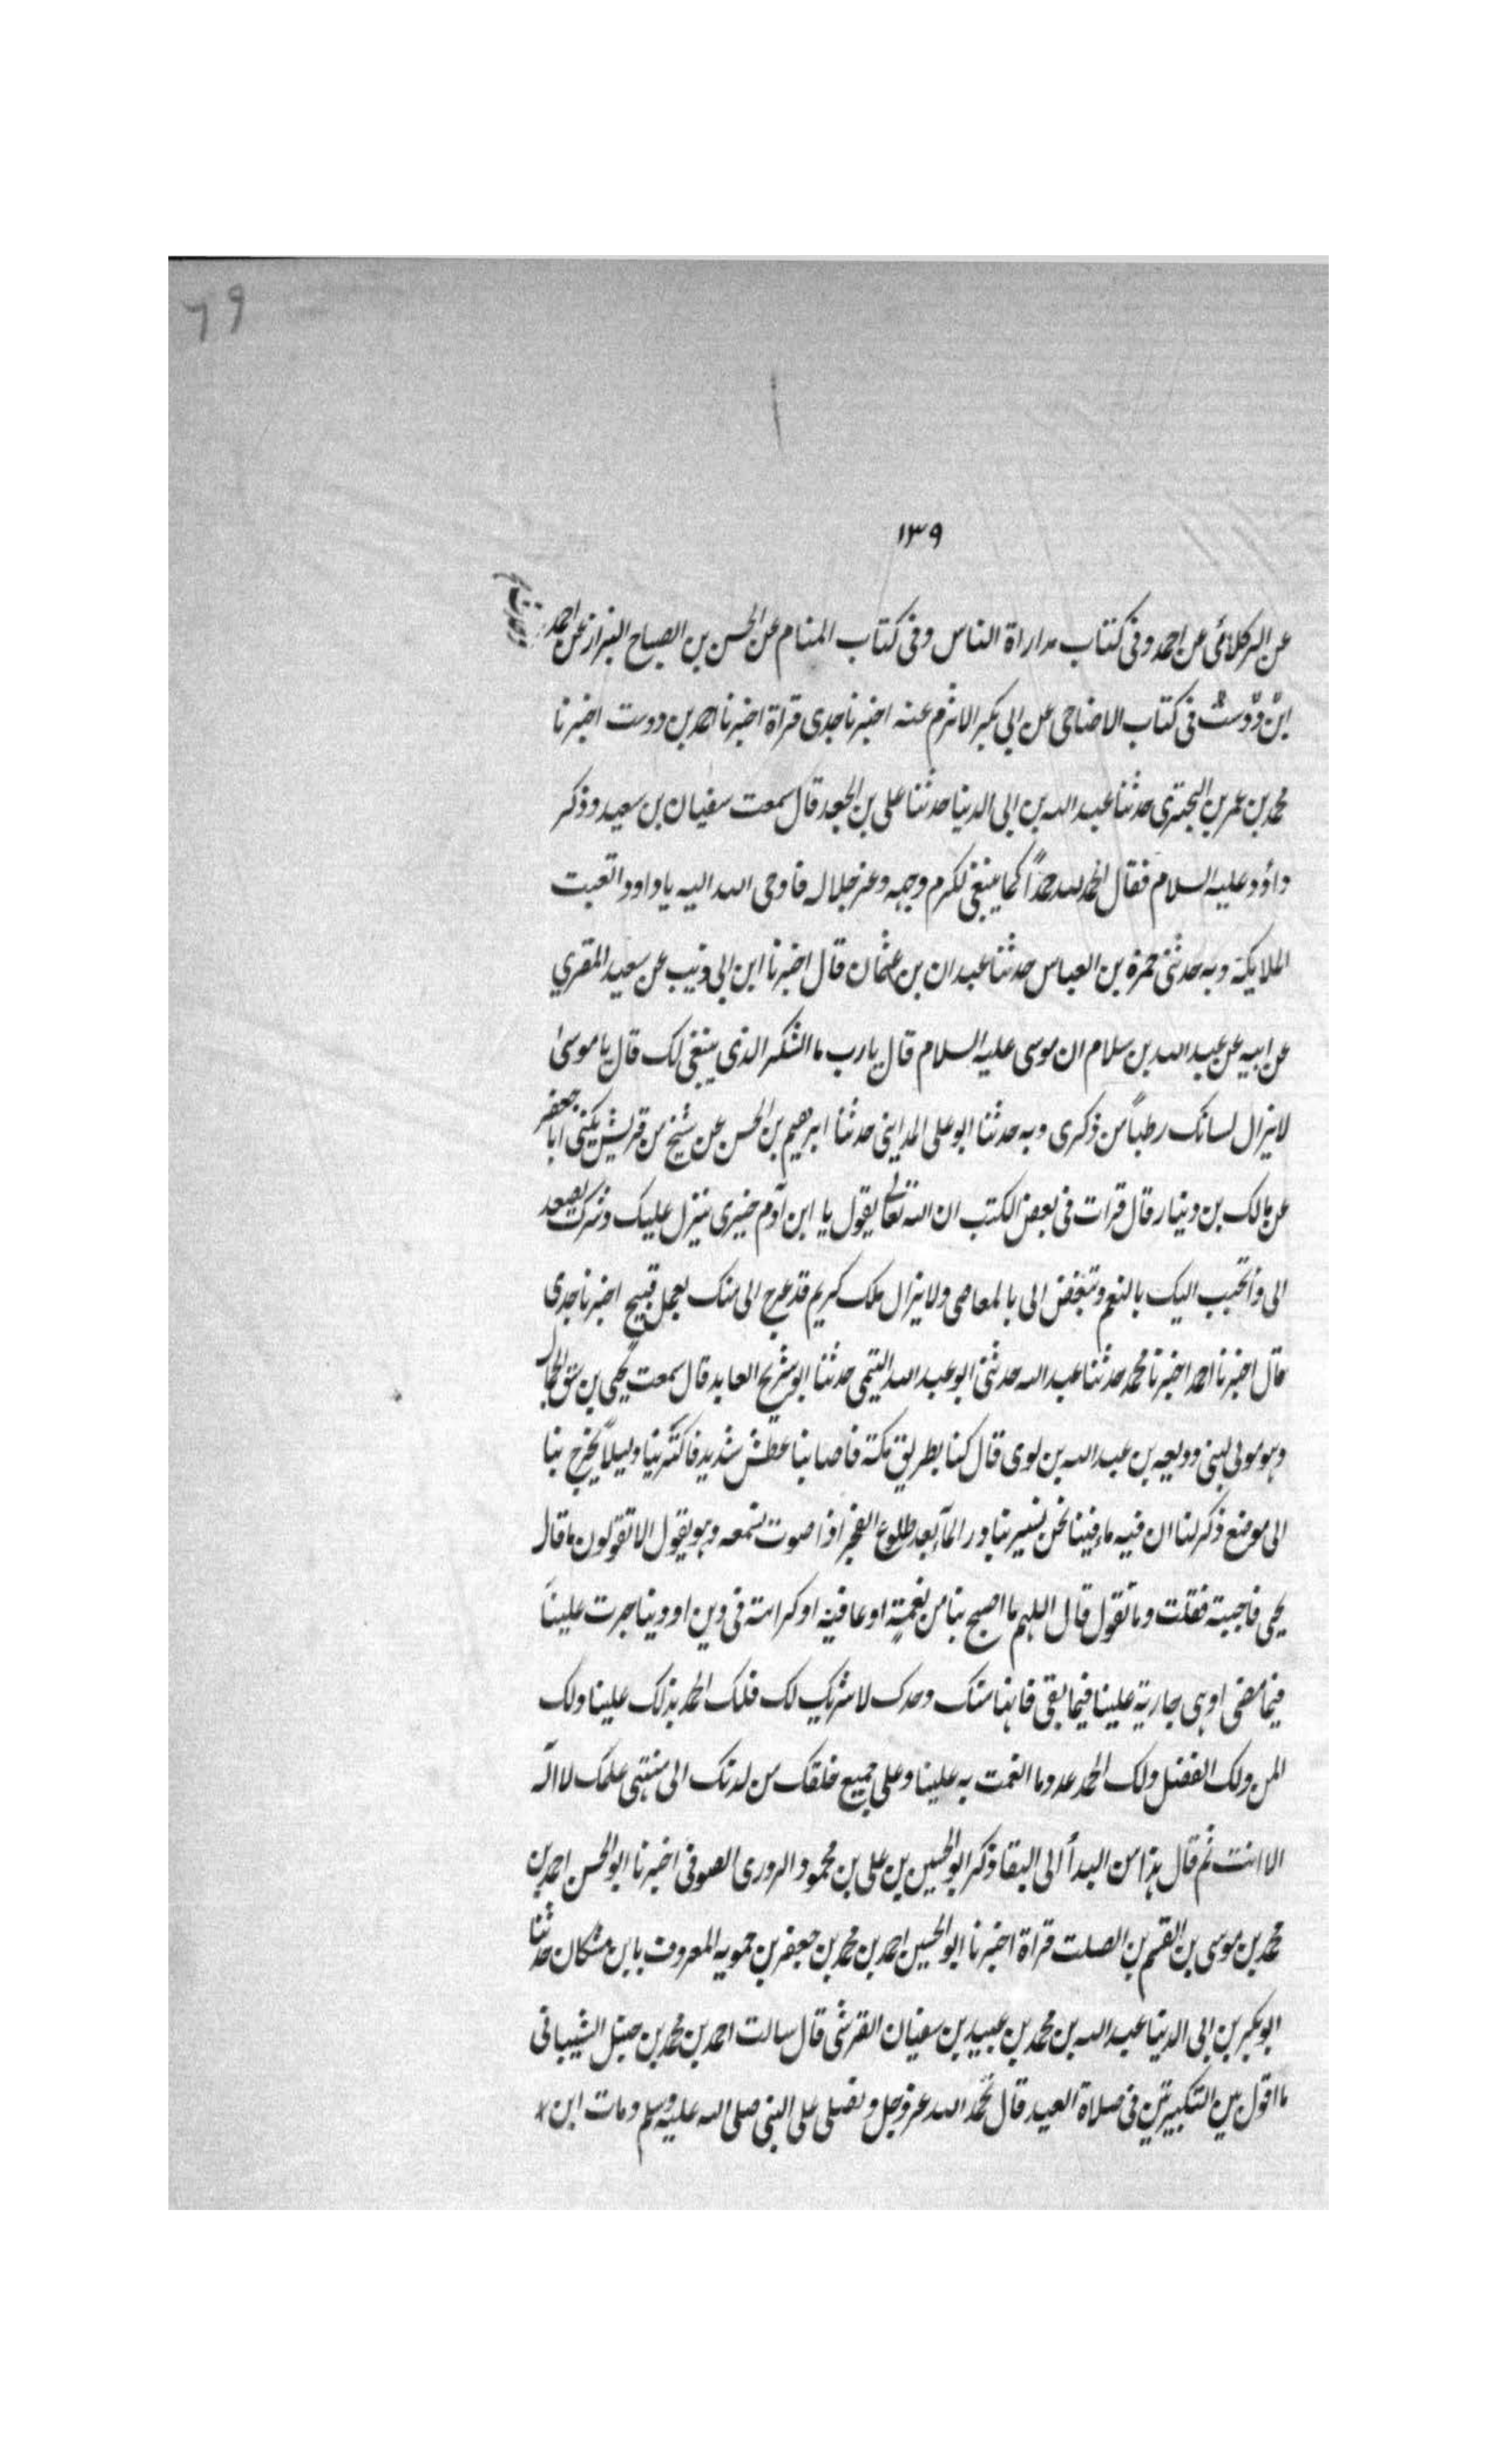 ٦٩
١٣٩
عن البركلانى عن احمد وفى كتاب مداراة الناس وفى كتاب المنام عن الحسن بن الصباح البزار عن احمد
ابن دوست فى كتاب الاضاحى عن ابى بكر الاثرم عنه اخبرنا جدى قراة اخبرنا احمد بن دوست اخبرنا
محمد بن عمر بن البخترى حدثنا عبد الله بن ابى الدنيا حدثنا على بن الجعد قال سمعت سفيان بن سعيد وذكر
داؤد عليه السلام فقال الحمد لله حمداً كما ينبغى لكرم وجهه وعز جلاله فاوحى الله اليه ياداود اتعبت
الملايكة وبه حدثنى حمزة بن العباس حدثنا عبدان بن عثمان قال اخبرنا ابن ابى ذيب عن سعيد المقبري
عن ابيه عن عبد الله بن سلام ان موسى عليه السلام قال يارب ما الشكر الذى ينبغى لك قال يا موسىٰ
لا يزال لسانك رطباً من ذكرى وبه حدثنا ابو على المداينى حدثنا ابرهيم بن الحسن عن شيخ من قريش يكنى ابا جعفر
عن مالك بن دينار قال قرات فى بعض الكتب ان الله تعالى يقول يا ابن آدم خيرى ينزل عليك وشرك يصعد
الى واتحبب اليك بالنعم وتتبغض الى بالمعاصى ولا يزال ملك كريم قد عرج الى منك بعمل قبيح اخبرنا جدى
قال اخبرنا احمد اخبرنا محمد حدثنا عبد الله حدثنى ابو عبد الله التيمى حدثنا ابو شريح العابد قال سمعت يحيى بن
وهو مولى لبنى وديعه بن عبد الله بن لوى قال كنا بطريق مكة فاصابنا عطش شديد فاكترينا دليلاً يخرج بنا
الى موضع ذكر لنا ان فيه ماء فبينا نحن نسير نبادر المآء بعد طلوع الفجر اذا صوت نسمعه وهو يقول الا تقولون قال
يحيى فاجبته فقلت وما تقول قال اللهم ما اصبح بنا من نعمة او عافية او كرامة فى دين او دنيا جرت علينا
فيما مضى او هى جارية علينا فيما بقى فانها منك وحدك لا شريك لك فلك الحمد بذلك علينا ولك
المن ولك الفضل ولك الحمد عدد ما انعمت به علينا وعلى جميع خلقك من لدنك الى منتهى علمك لا اله
الا انت ثم قال هذا من البدأ الى البقا وذكر ابو الحسين بن على بن محمود الزوزى الصوفى اخبرنا ابو الحسن احمد بن
محمد بن موسى بن القسم بن الصلت قراة اخبرنا ابو الحسين احمد بن محمد بن جعفر بن حمويه المعروف بابن مشكان حدثنا
ابو بكر بن ابى الدنيا عبد الله بن محمد بن عبيد بن سفيان القرشى قال سالت احمد بن محمد بن حنبل الشيبانى
ما اقول بين التكبيرتين فى صلاة العيد قال تحمد الله عز وجل وتصلى على النبى صلى الله عليه وسلم ومات ابن